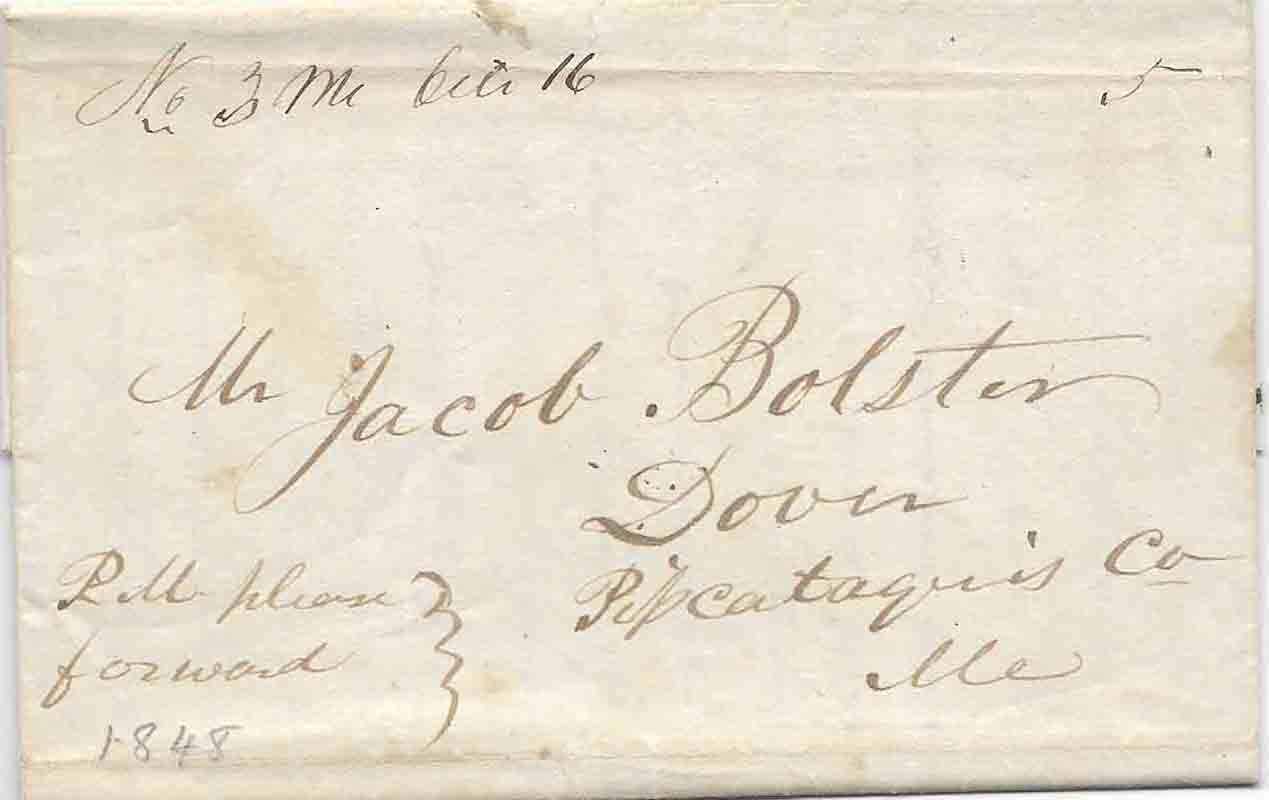 No 3 Me Oct 16 5
Mr Jacob Bolster
Dover
Piscataquis Co
Me
P. M. please
forward
1848